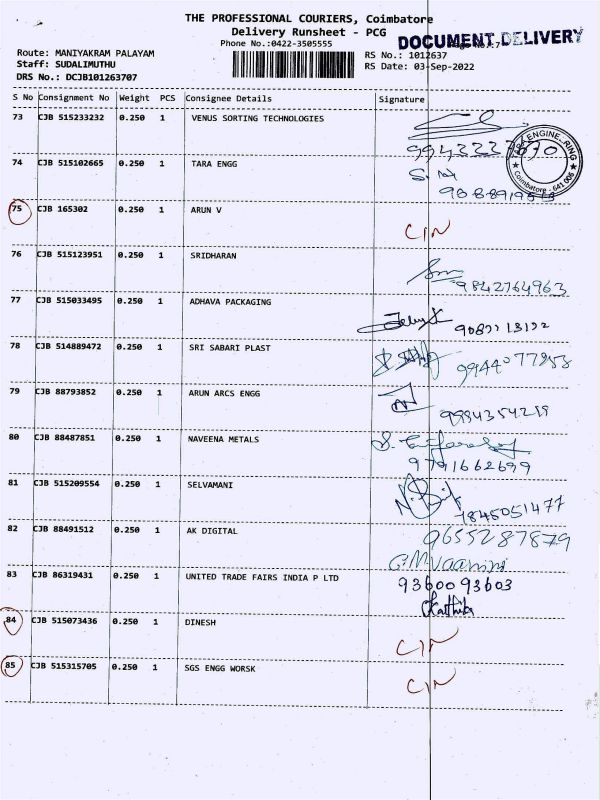 THE PROFESSIONAL COURIERS, Coimbatore
Delivery Runsheet - PCG
Phone No.:0422-3505555
DOCUMENT DELIVERY
Route: MANIYAKRAM PALAYAM
Staff: SUDALIMUTHU
DRS No.: DCJB101263707
RS No.: 1012637
RS Date: 03-Sep-2022
S No Consignment No Weight PCS Consignee Details Signature
73 CJB 515233232 0.250 1 VENUS SORTING TECHNOLOGIES
74 CJB 515102665 0.250 1 TARA ENGG
Coimbatore - 641 006
75 CJB 165302 0.250 1 ARUN V
C/N
76 CJB 515123951 0.250 1 SRIDHARAN
9842764963
77 CJB 515033495 0.250 1 ADHAVA PACKAGING
78 CJB 514889472 0.250 1 SRI SABARI PLAST
79 CJB 88793852 0.250 1 ARUN ARCS ENGG
80 CJB 88487851 0.250 1 NAVEENA METALS
9791662699
81 CJB 515209554 0.250 1 SELVAMANI
82 CJB 88491512 0.250 1 AK DIGITAL
9655287879
83 CJB 86319431 0.250 1 UNITED TRADE FAIRS INDIA P LTD
9360093603
84 CJB 515073436 0.250 1 DINESH
C/N
85 CJB 515315705 0.250 1 SGS ENGG WORSK
C/N